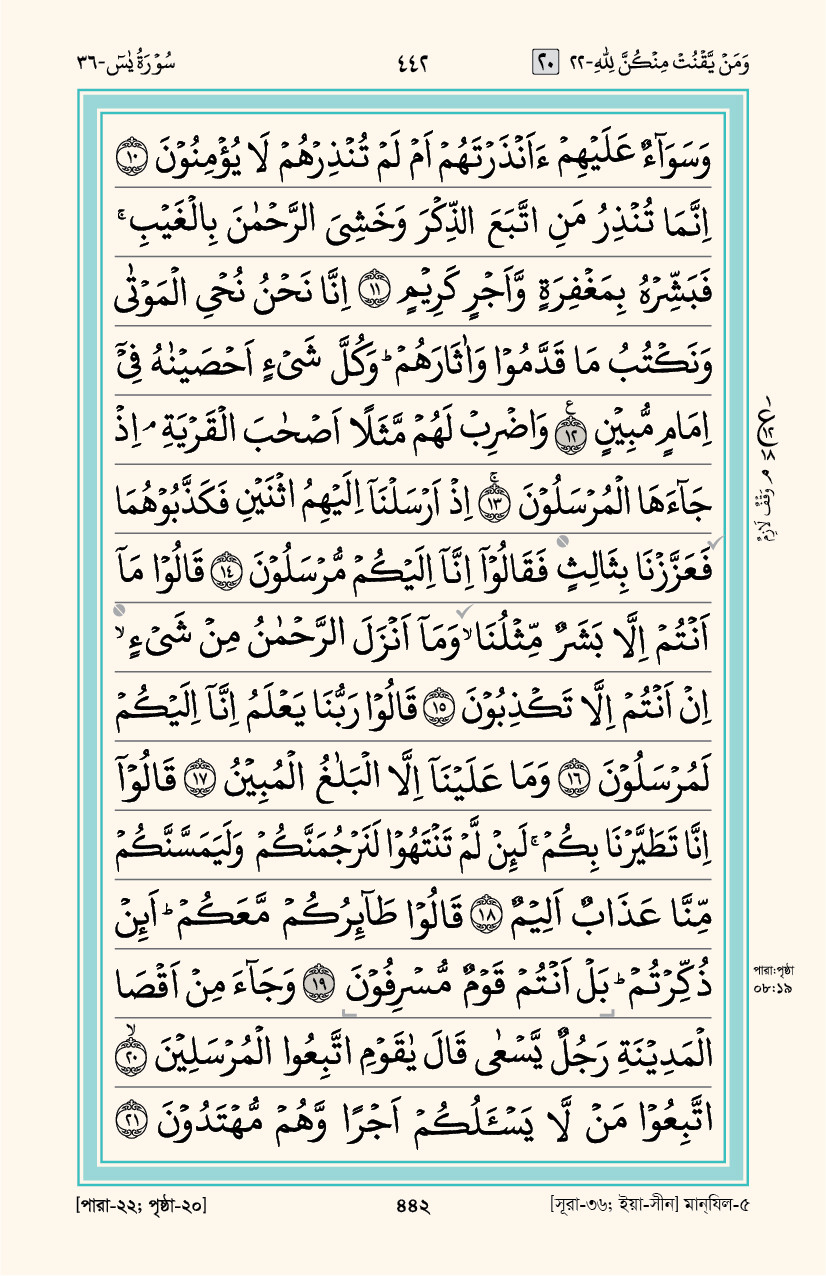 وَمَنۡ يَّقۡنُتۡ مِنۡكُنَّ لِلّٰهِ-٢٢ ٢٠ ٤٤٢ سُوۡرَةُ يٰسٓ-٣٦
وَسَوَآءٌ عَلَيۡهِمۡ ءَاَنۡذَرۡتَهُمۡ اَمۡ لَمۡ تُنۡذِرۡهُمۡ لَا يُؤۡمِنُوۡنَ ﴿١٠﴾
اِنَّمَا تُنۡذِرُ مَنِ اتَّبَعَ الذِّكۡرَ وَخَشِىَ الرَّحۡمٰنَ بِالۡغَيۡبِ ۚ
فَبَشِّرۡهُ بِمَغۡفِرَةٍ وَّاَجۡرٍ كَرِيۡمٍ ﴿١١﴾ اِنَّا نَحۡنُ نُحۡىِ الۡمَوۡتٰى
وَنَكۡتُبُ مَا قَدَّمُوۡا وَاٰثَارَهُمۡ ؕ وَكُلَّ شَىۡءٍ اَحۡصَيۡنٰهُ فِىۡۤ
اِمَامٍ مُّبِيۡنٍ ﴿١٢﴾ ع وَاضۡرِبۡ لَهُمۡ مَّثَلًا اَصۡحٰبَ الۡقَرۡيَةِ ۘ اِذۡ
جَآءَهَا الۡمُرۡسَلُوۡنَ ۚ ﴿١٣﴾ اِذۡ اَرۡسَلۡنَاۤ اِلَيۡهِمُ اثۡنَيۡنِ فَكَذَّبُوۡهُمَا
فَعَزَّزۡنَا بِثَالِثٍ فَقَالُوۡۤا اِنَّاۤ اِلَيۡكُمۡ مُّرۡسَلُوۡنَ ﴿١٤﴾ قَالُوۡا مَاۤ
اَنۡتُمۡ اِلَّا بَشَرٌ مِّثۡلُنَا ۙ وَمَاۤ اَنۡزَلَ الرَّحۡمٰنُ مِنۡ شَىۡءٍ ۙ
اِنۡ اَنۡتُمۡ اِلَّا تَكۡذِبُوۡنَ ﴿١٥﴾ قَالُوۡا رَبُّنَا يَعۡلَمُ اِنَّاۤ اِلَيۡكُمۡ
لَمُرۡسَلُوۡنَ ﴿١٦﴾ وَمَا عَلَيۡنَاۤ اِلَّا الۡبَلٰغُ الۡمُبِيۡنُ ﴿١٧﴾ قَالُوۡۤا
اِنَّا تَطَيَّرۡنَا بِكُمۡ ۚ لَئِنۡ لَّمۡ تَنۡتَهُوۡا لَنَرۡجُمَنَّكُمۡ وَلَيَمَسَّنَّكُمۡ
مِّنَّا عَذَابٌ اَلِيۡمٌ ﴿١٨﴾ قَالُوۡا طَآئِرُكُمۡ مَّعَكُمۡ ؕ اَئِنۡ
ذُكِّرۡتُمۡ ؕ بَلۡ اَنۡتُمۡ قَوۡمٌ مُّسۡرِفُوۡنَ ﴿١٩﴾ وَجَآءَ مِنۡ اَقۡصَا
الۡمَدِيۡنَةِ رَجُلٌ يَّسۡعٰى قَالَ يٰقَوۡمِ اتَّبِعُوا الۡمُرۡسَلِيۡنَ ۙ ﴿٢٠﴾
اتَّبِعُوۡا مَنۡ لَّا يَسۡـَٔلُكُمۡ اَجۡرًا وَّهُمۡ مُّهۡتَدُوۡنَ ﴿٢١﴾
وَقۡفٌ لَازِمٌ
পারা:পৃষ্ঠা
০৮:১৯
[পারা-২২; পৃষ্ঠা-২০] ৪৪২ [সূরা-৩৬; ইয়া-সীন] মান্‌যিল-৫